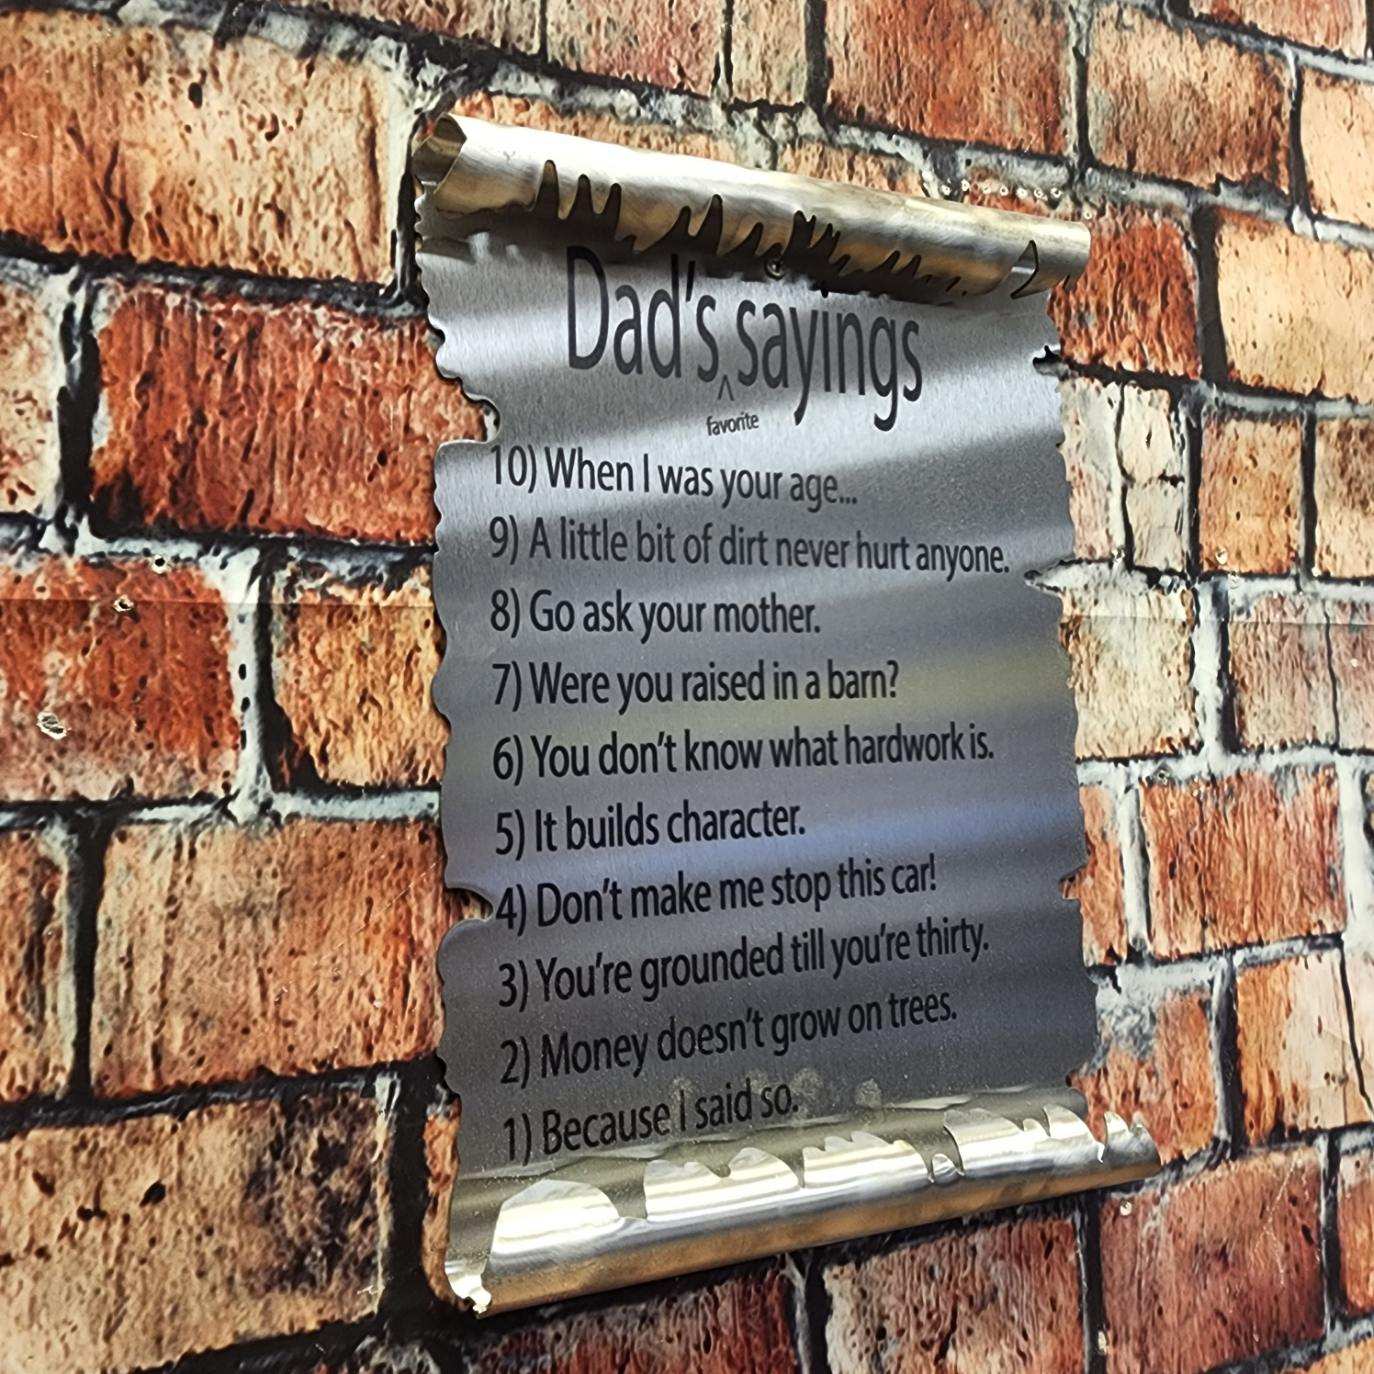 Dad's ^ sayings
favorite
10) When I was your age...
9) A little bit of dirt never hurt anyone.
8) Go ask your mother.
7) Were you raised in a barn?
6) You don't know what hardwork is.
5) It builds character.
4) Don't make me stop this car!
3) You're grounded till you're thirty.
2) Money doesn't grow on trees.
1) Because I said so.